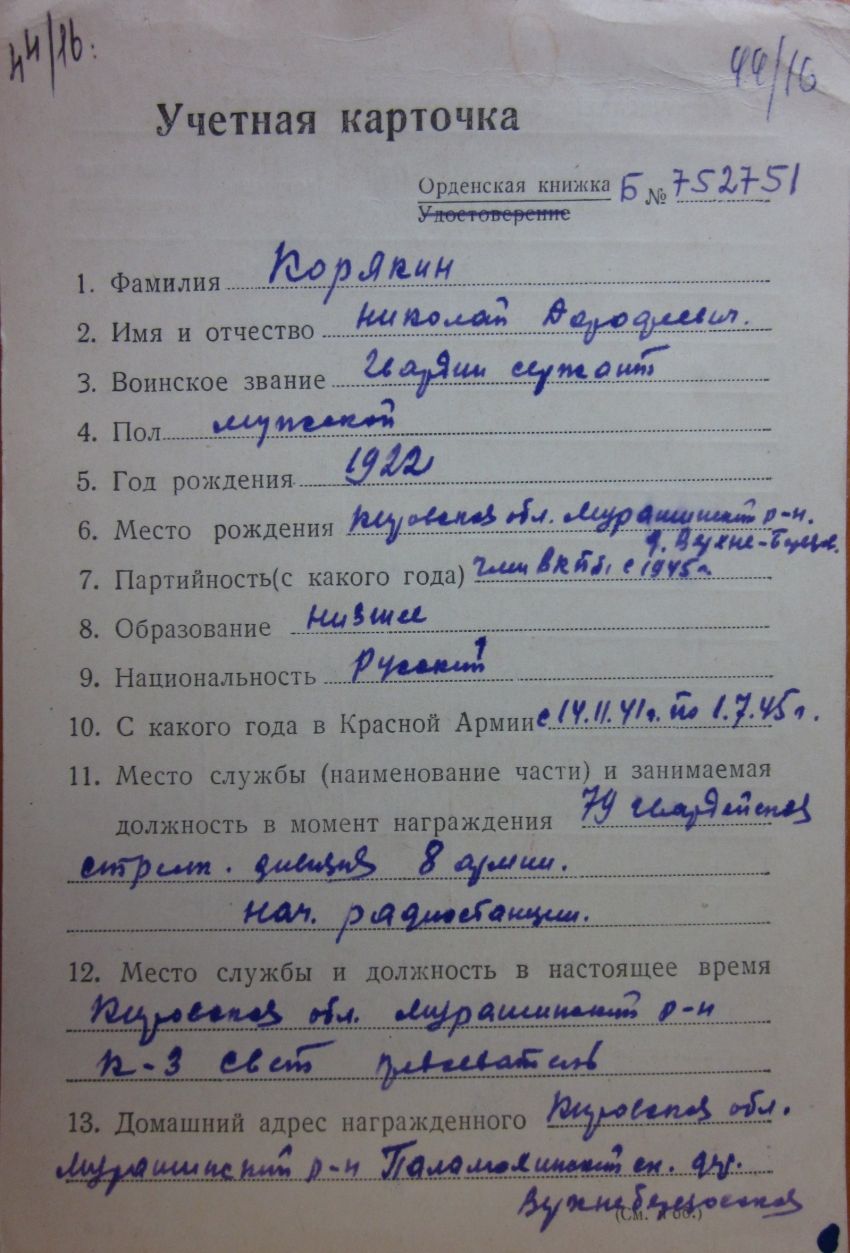 44/16. 44/16
Учетная карточка
Орденская книжка Б № 752751
Удостоверение
1. Фамилия Корякин
2. Имя и отчество Николай Дорофеевич.
3. Воинское звание Гвардии сержант
4. Пол мужской
5. Год рождения 1922
6. Место рождения Кировская обл. Мурашинский р-н.
д. Верхне-
7. Партийность(с какого года) член ВКПб. с 1945г
8. Образование низшее
9. Национальность Русский
10. С какого года в Красной Армии с 14.11.41г. по 1.7.45г.
11. Место службы (наименование части) и занимаемая
должность в момент награждения 79 гвардейская
стрелк. дивизия 8 армии.
нач. радиостанции.
12. Место службы и должность в настоящее время
Кировская обл. Мурашинский р-н
К-з свет
13. Домашний адрес награжденного Кировская обл.
Мурашинский р-н дер.
(См. н об.)